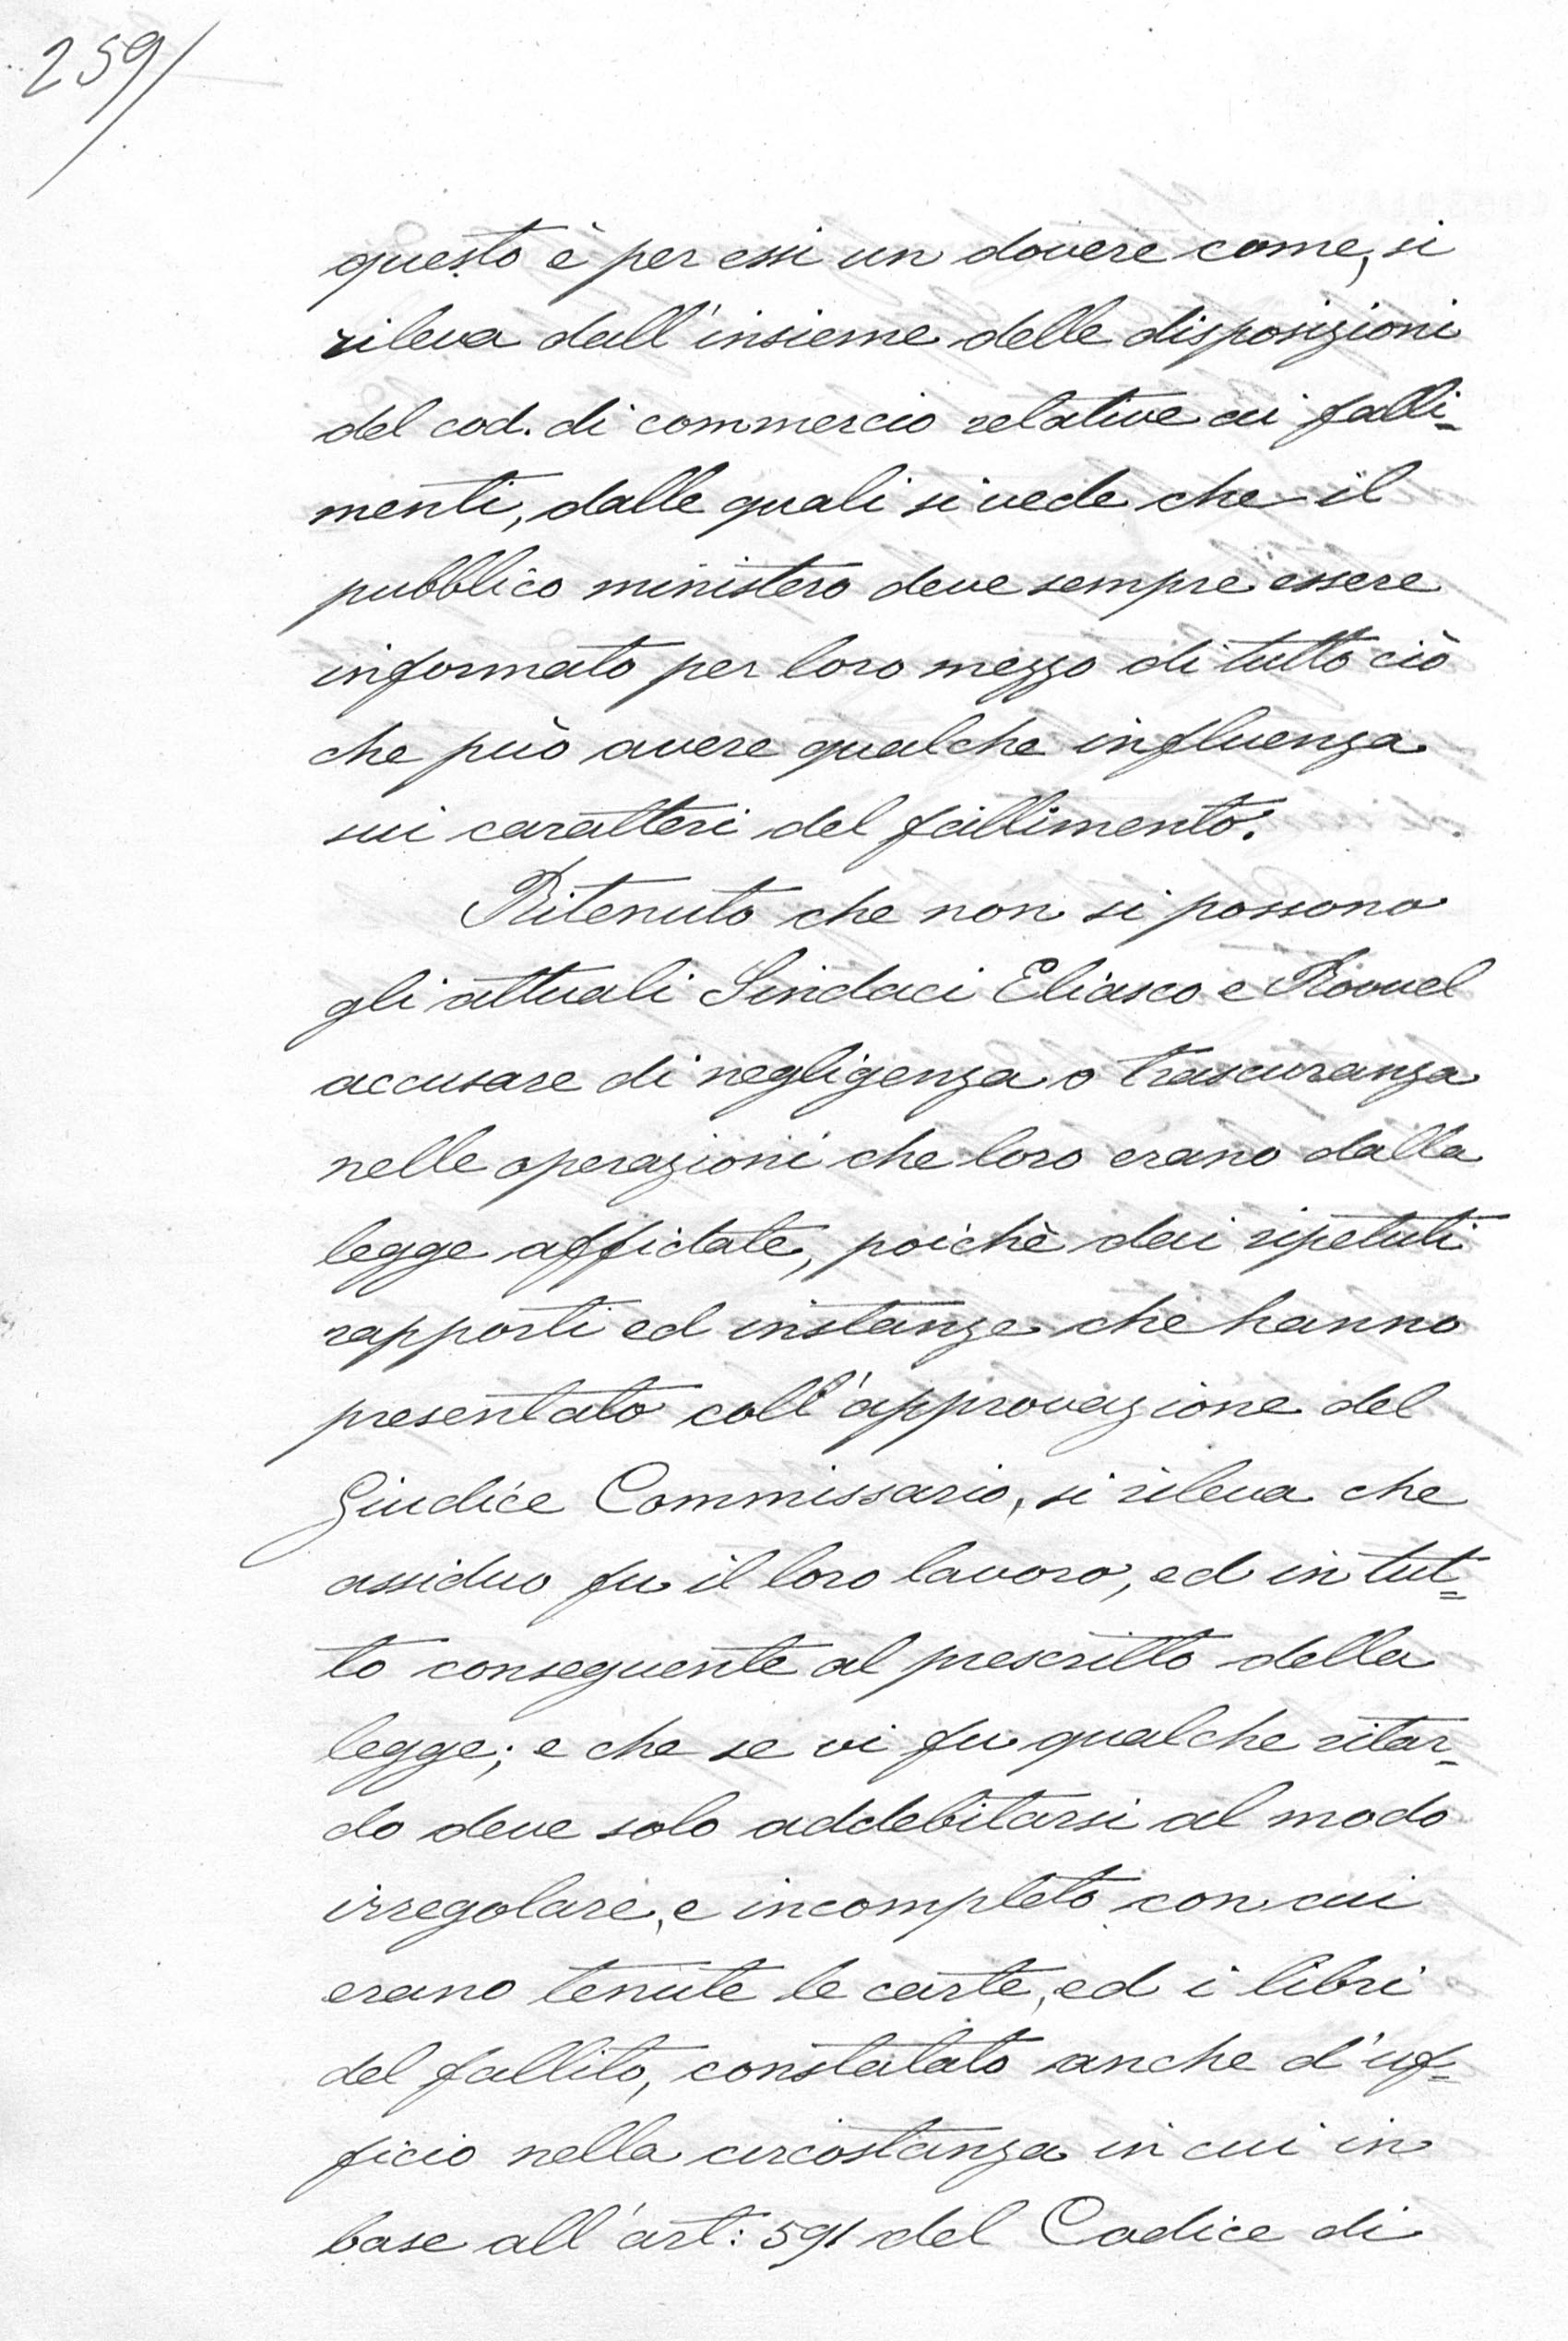 259/
questo è per essi un dovere come, si
rileva dall'insieme delle disposizioni
del cod. di commercio relative ai falli-
menti, dalle quali si vede che il
pubblico ministero deve sempre essere
informato per loro mezzo di tutto ciò
che può avere qualche influenza
sui caratteri del fallimento.
Ritenuto che non si possono
gli attuali Sindaci Eliasco e
accusare di negligenza o trascuranza
nelle operazioni che loro erano dalla
legge affidate, poichè dai ripetuti
rapporti ed instanze che hanno
presentato coll'approvazione del
Giudice Commissario, si rileva che
assiduo fu il loro lavoro, ed in tut=
to conseguente al prescritto della
legge; e che se vi fu qualche ritar-
do deve solo addebitarsi al modo
irregolare, e incompleto con cui
erano tenute le carte, ed i libri
del fallito, constatato anche d'uf=
ficio nella circostanza in cui in
base all'art: 591 del Codice di